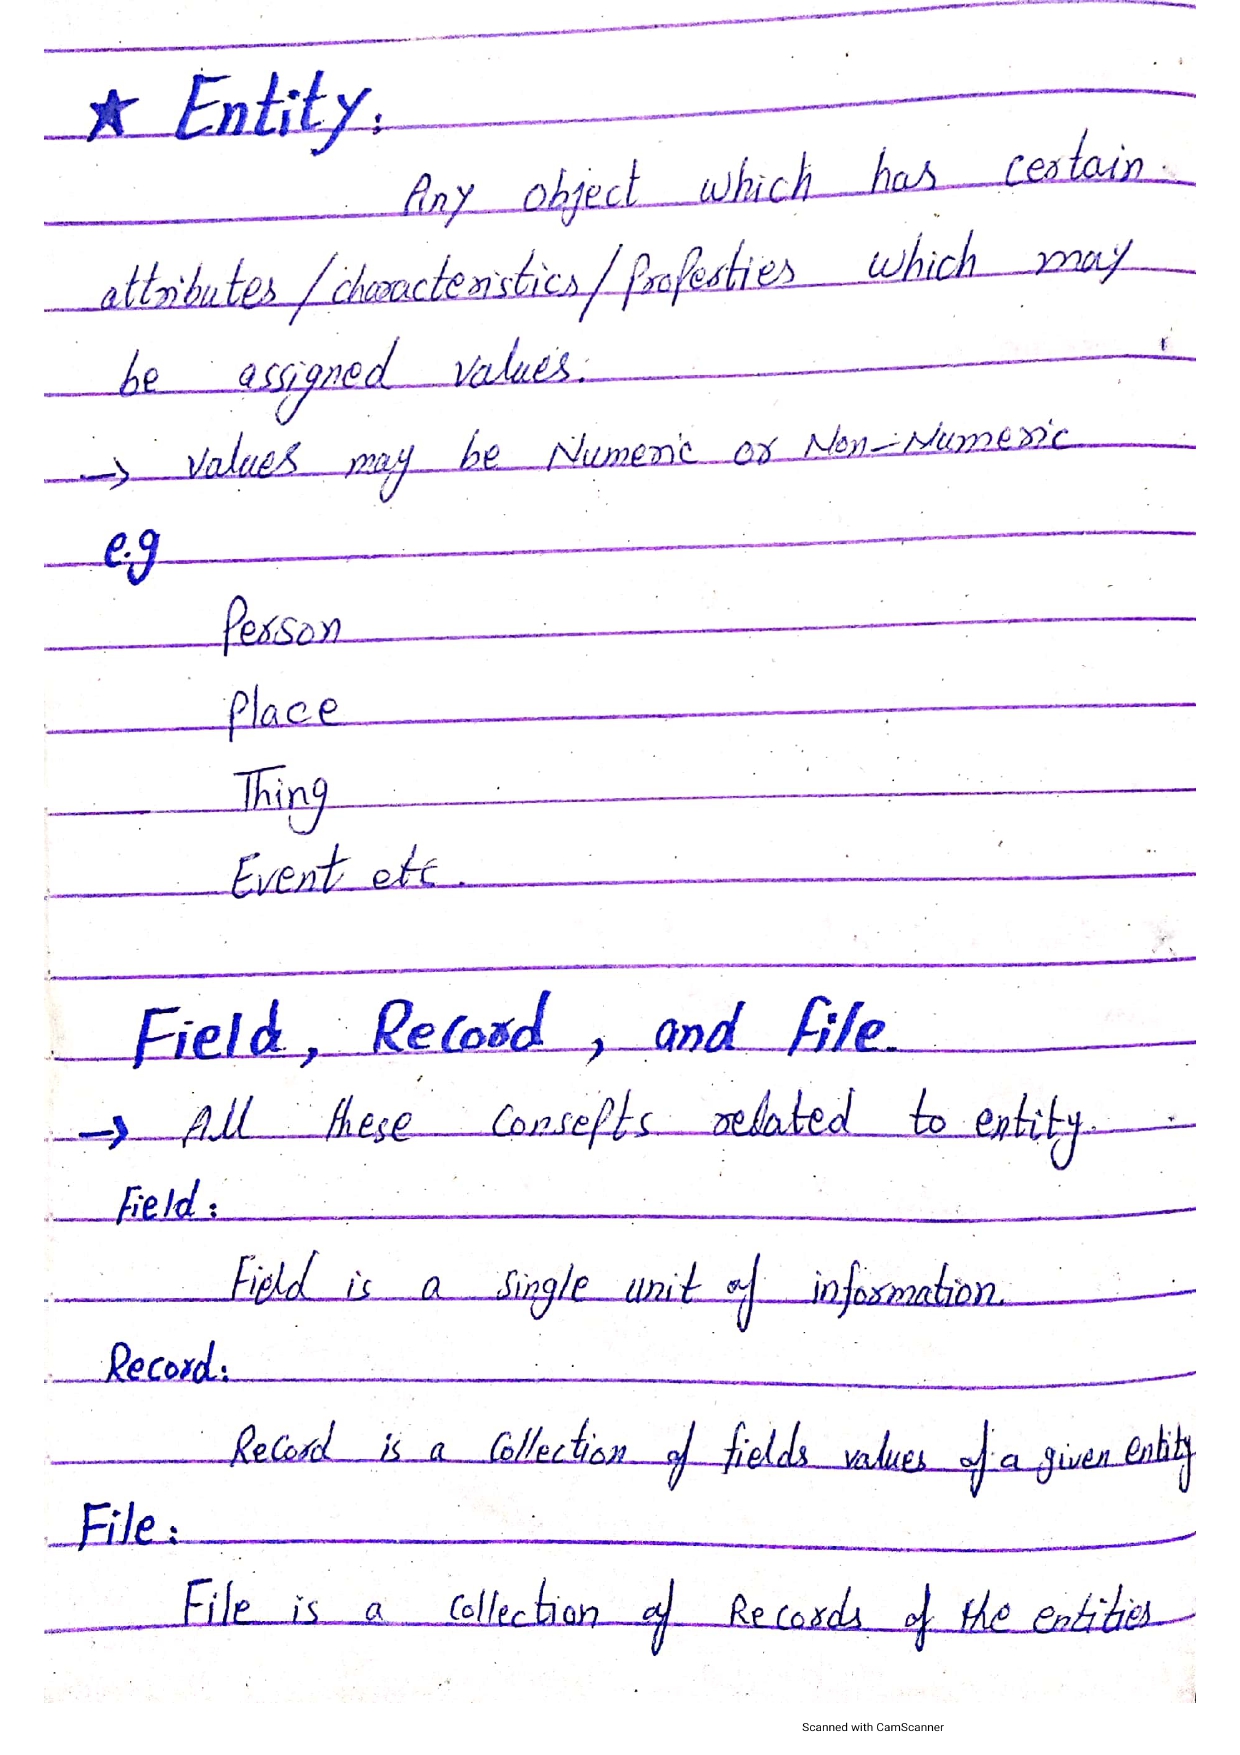 ★ Entity:
Any object which has certain
attributes/characteristics/Properties which may
be assigned values.
→ values may be Numeric or Non-Numeric
e.g
Person
Place
Thing
Event etc.
Field, Record, and file.
→ All these consepts related to entity.
Field:
Field is a single unit of information.
Record:
Record is a collection of fields values of a given entity
File:
File is a collection of Records of the entities
Scanned with CamScanner